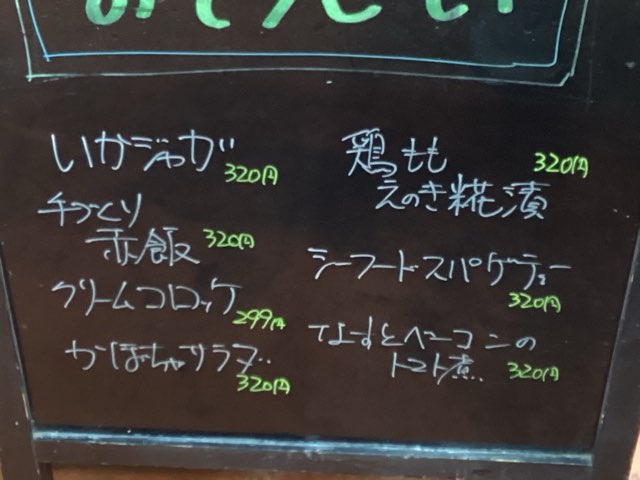 いかジャガ
320円
手づくり
赤飯 320円
クリームコロッケ
299円
かぼちゃサラダ
320円
鶏もも 320円
えのき糀漬
シーフードスパゲティー
320円
なすとベーコンの
トマト煮 320円